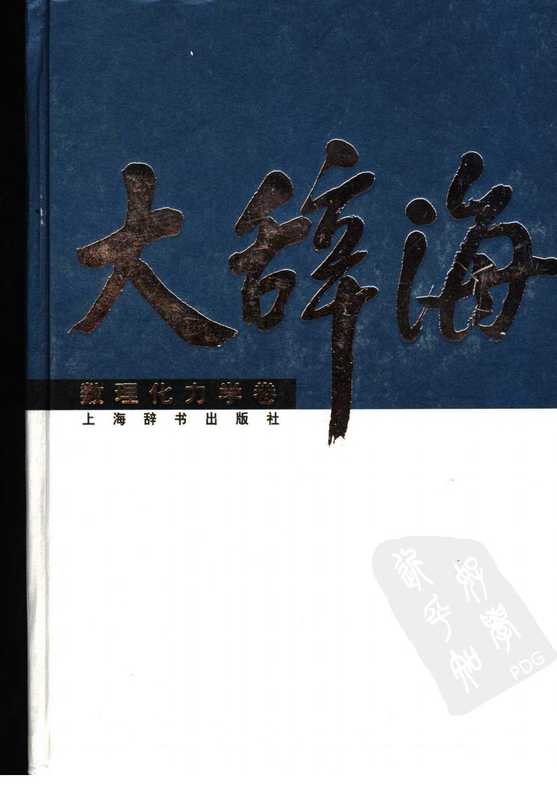 大辞海
数理化力学卷
上海辞书出版社
PDG